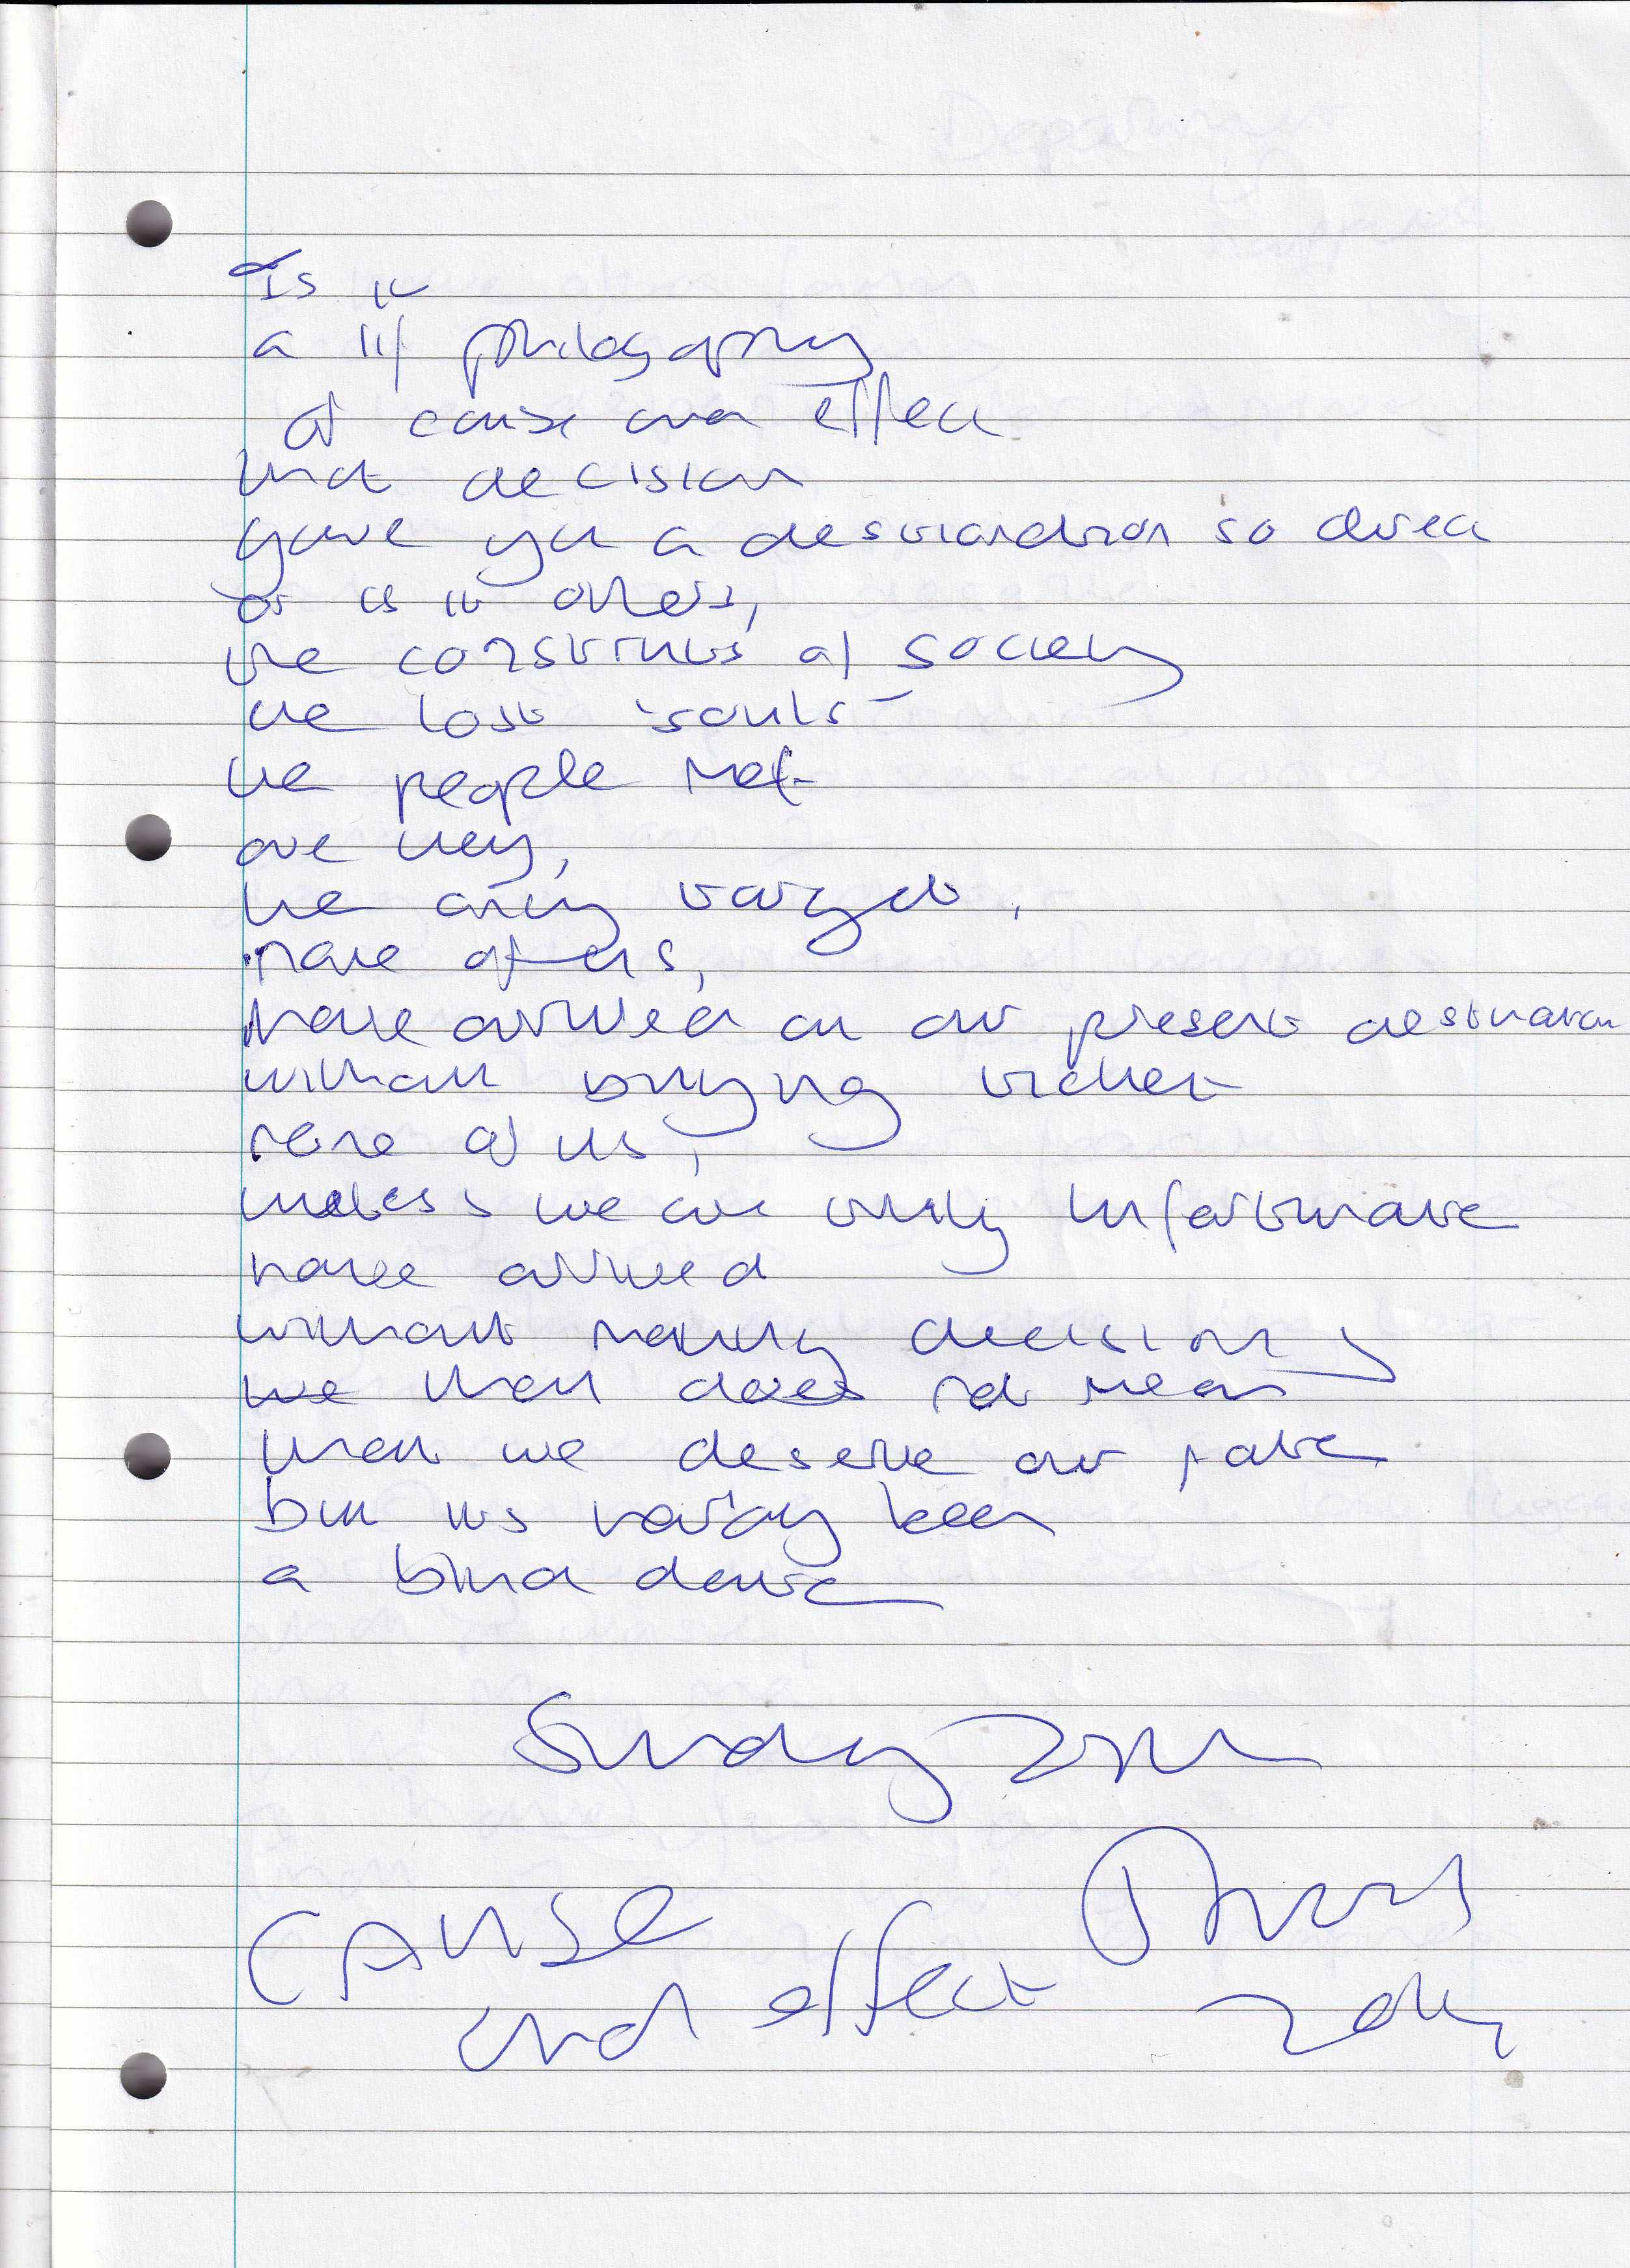 Is it
a life philosophy
of cause and effect
that decision
gave you a destination so direct
or is it others,
the constructs of society
the lost souls
the people met
are they,
the only target,
none of us,
have arrived at our present destination
without buying ticket
none of us,
unless we are truly unfortunate
have arrived
without making decisions
that does not mean
that we deserve our fate
but its hardly been
a blind date
Sunday
Cause
and effect